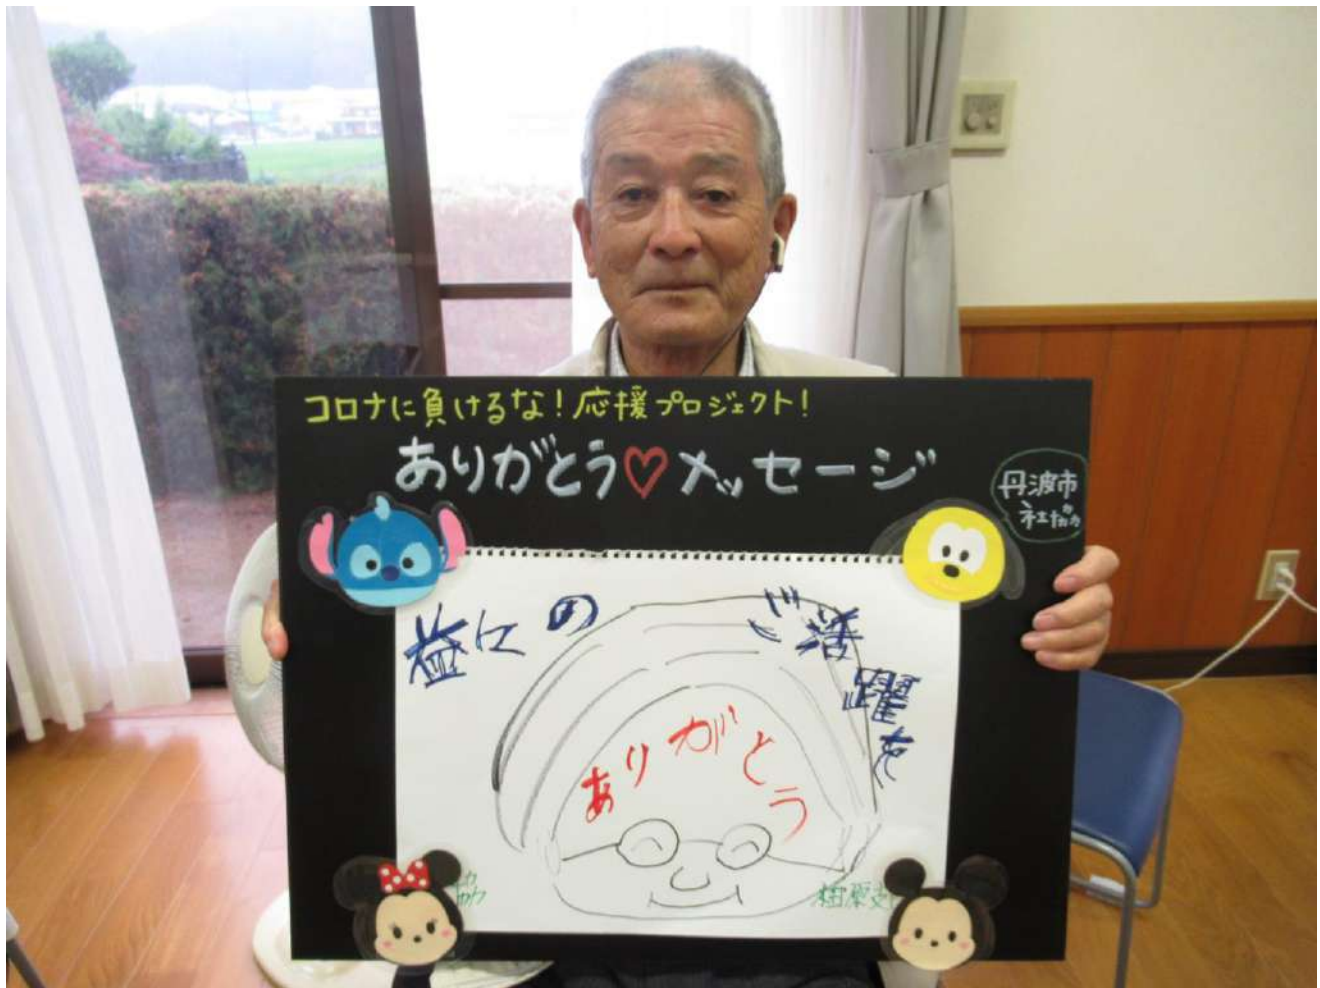 コロナに負けるな！応援プロジェクト！
ありがとう♡メッセージ
丹波市
社協
益々のご活躍を
ありがとう